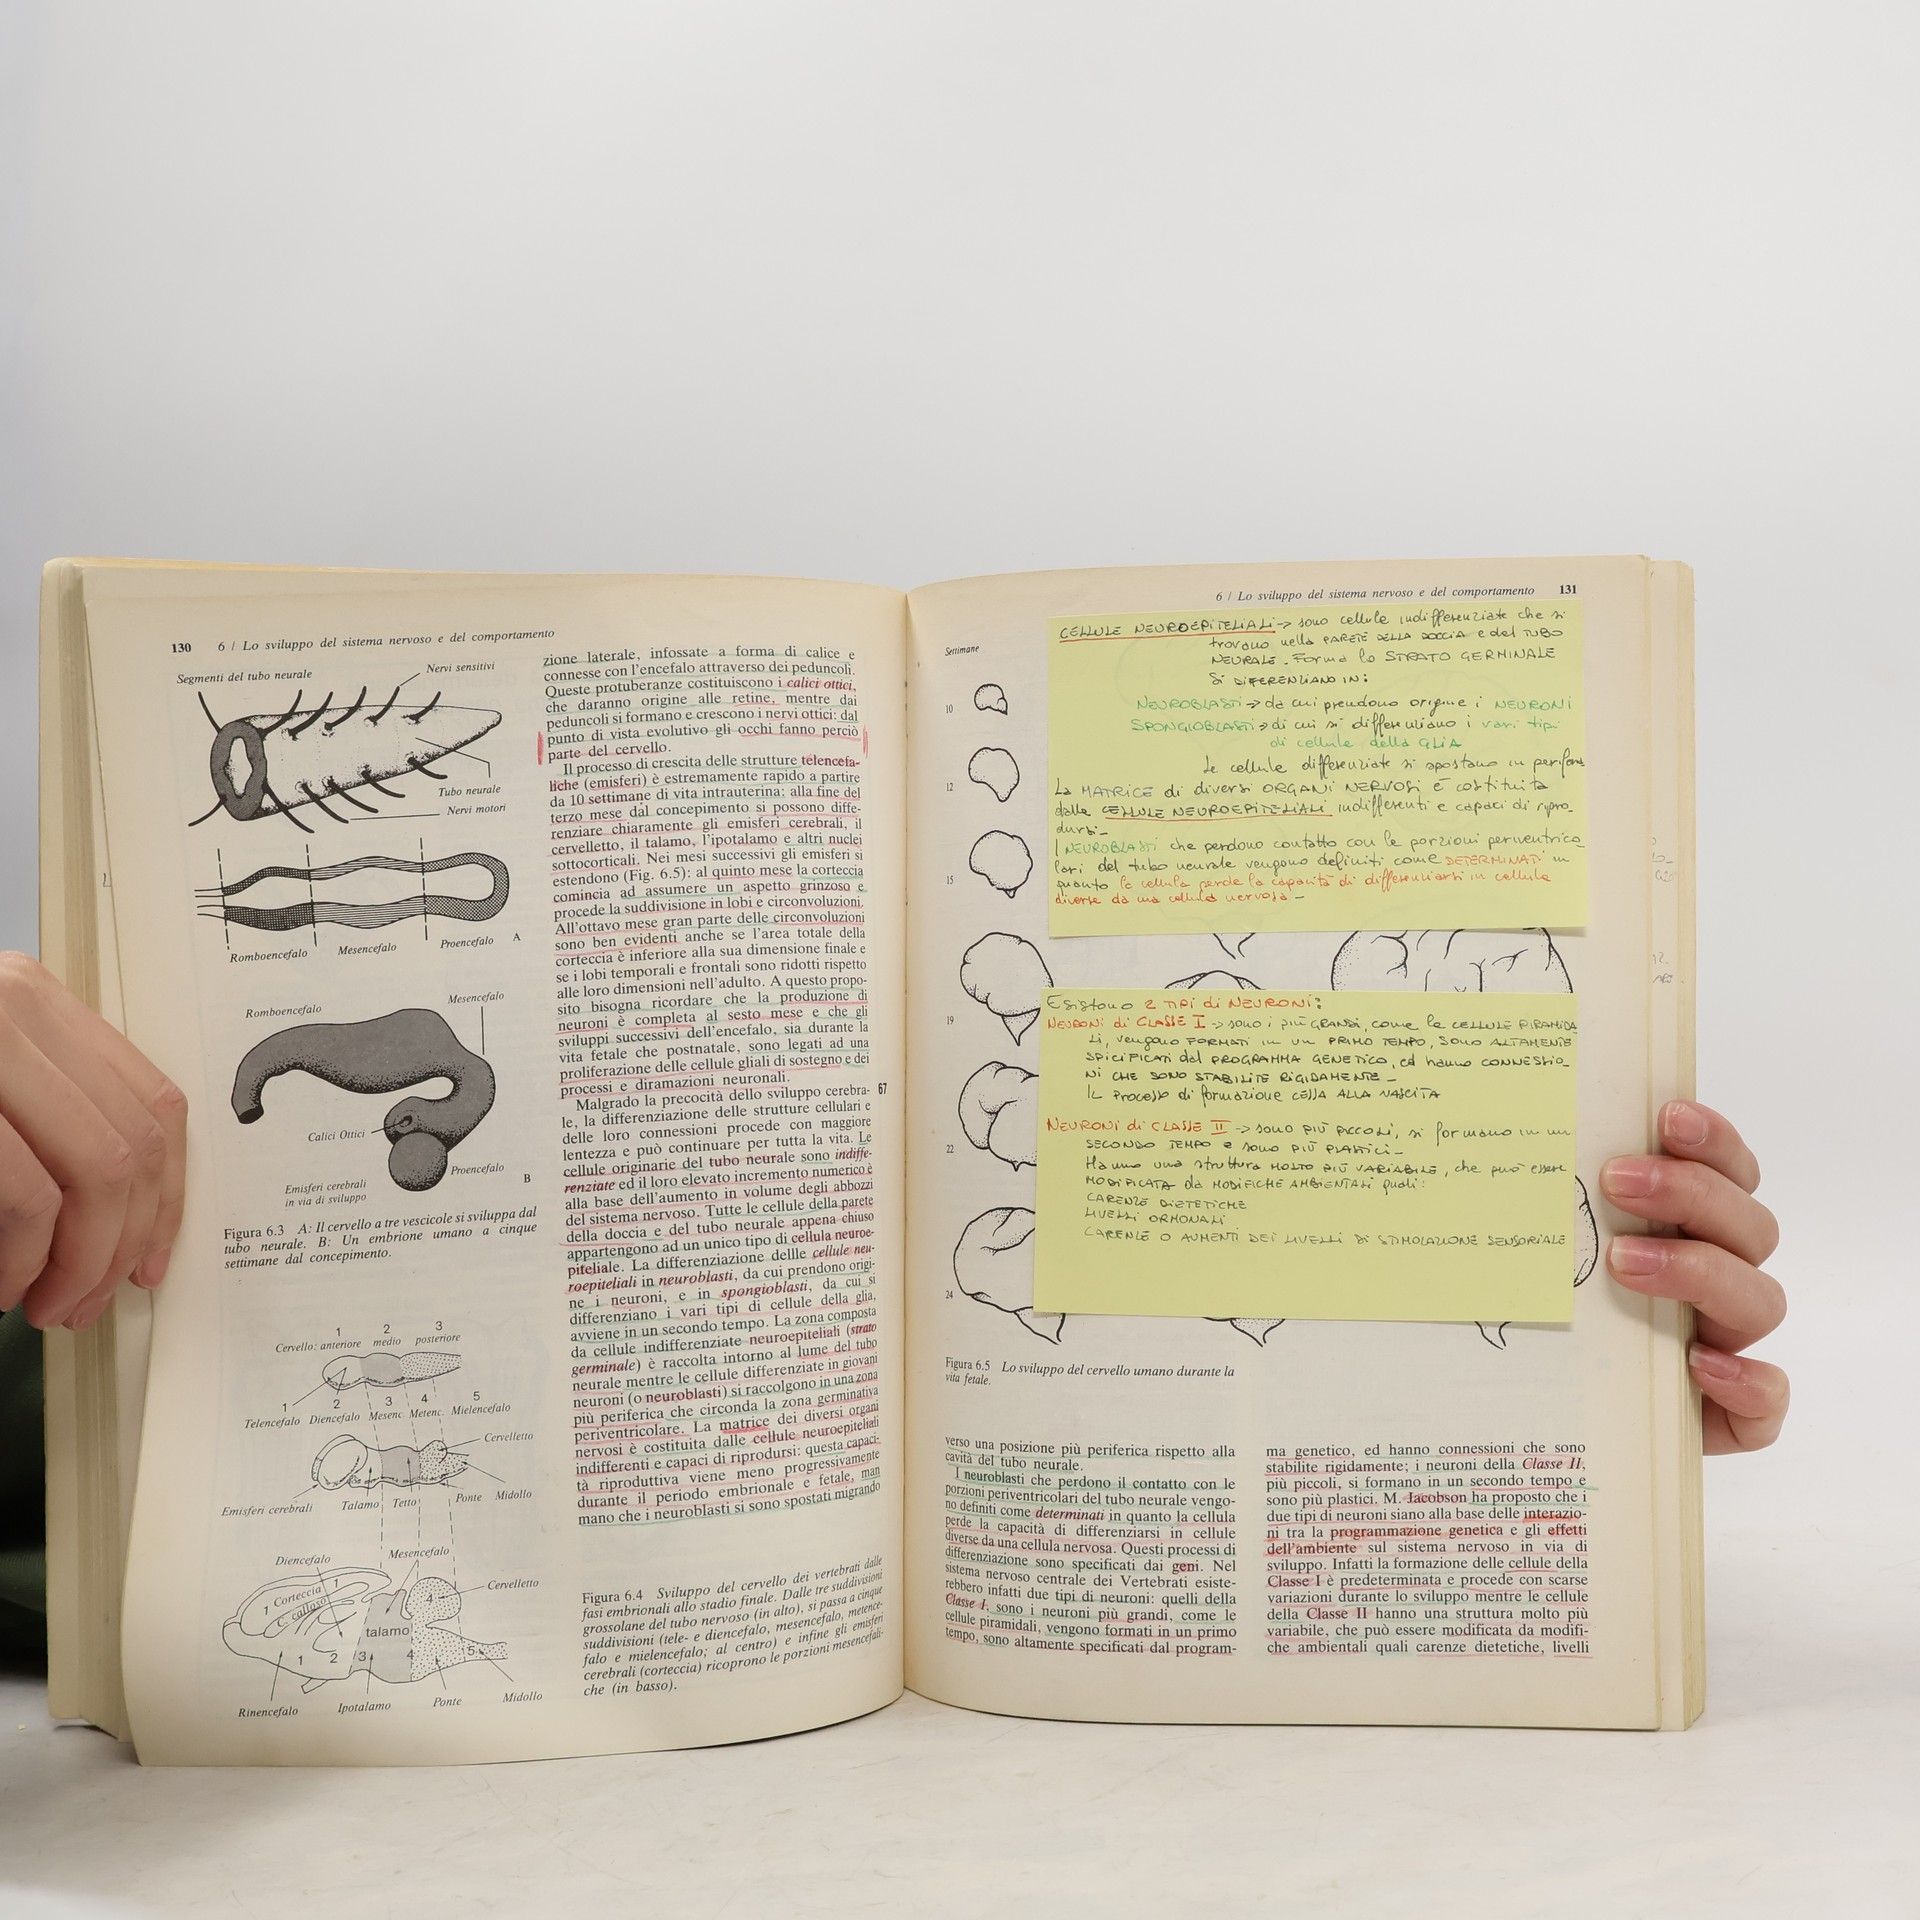 130 6 / Lo sviluppo del sistema nervoso e del comportamento
Segmenti del tubo neurale
Nervi sensitivi
Tubo neurale
Nervi motori
Romboencefalo Mesencefalo Proencefalo A
Romboencefalo
Mesencefalo
Calici Ottici
Proencefalo
Emisferi cerebrali
in via di sviluppo
B
Figura 6.3 A: Il cervello a tre vescicole si sviluppa dal
tubo neurale. B: Un embrione umano a cinque
settimane dal concepimento.
1 2 3
Cervello: anteriore medio posteriore
1 2 3 4 5
Telencefalo Diencefalo Mesenc. Metenc. Mielencefalo
Cervelletto
Emisferi cerebrali Talamo Tetto Ponte Midollo
Diencefalo
Mesencefalo
Cervelletto
1 Corteccia 1
C. calloso
4
talamo
1 2 3 4 5
Rinencefalo Ipotalamo Ponte Midollo
zione laterale, infossate a forma di calice e
connesse con l'encefalo attraverso dei peduncoli.
Queste protuberanze costituiscono i calici ottici,
che daranno origine alle retine, mentre dai
peduncoli si formano e crescono i nervi ottici: dal
punto di vista evolutivo gli occhi fanno perciò
parte del cervello.
Il processo di crescita delle strutture telencefa-
liche (emisferi) è estremamente rapido a partire
da 10 settimane di vita intrauterina: alla fine del
terzo mese dal concepimento si possono diffe-
renziare chiaramente gli emisferi cerebrali, il
cervelletto, il talamo, l'ipotalamo e altri nuclei
sottocorticali. Nei mesi successivi gli emisferi si
estendono (Fig. 6.5): al quinto mese la corteccia
comincia ad assumere un aspetto grinzoso e
procede la suddivisione in lobi e circonvoluzioni.
All'ottavo mese gran parte delle circonvoluzioni
sono ben evidenti anche se l'area totale della
corteccia è inferiore alla sua dimensione finale e
se i lobi temporali e frontali sono ridotti rispetto
alle loro dimensioni nell'adulto. A questo propo-
sito bisogna ricordare che la produzione di
neuroni è completa al sesto mese e che gli
sviluppi successivi dell'encefalo, sia durante la
vita fetale che postnatale, sono legati ad una
proliferazione delle cellule gliali di sostegno e dei
processi e diramazioni neuronali.
Malgrado la precocità dello sviluppo cerebra- 67
le, la differenziazione delle strutture cellulari e
delle loro connessioni procede con maggiore
lentezza e può continuare per tutta la vita. Le
cellule originarie del tubo neurale sono indiffe-
renziate ed il loro elevato incremento numerico è
alla base dell'aumento in volume degli abbozzi
del sistema nervoso. Tutte le cellule della parete
della doccia e del tubo neurale appena chiuso
appartengono ad un unico tipo di cellula neuroe-
piteliale. La differenziazione dellle cellule neu-
roepiteliali in neuroblasti, da cui prendono origi-
ne i neuroni, e in spongioblasti, da cui si
differenziano i vari tipi di cellule della glia,
avviene in un secondo tempo. La zona composta
da cellule indifferenziate neuroepiteliali (strato
germinale) è raccolta intorno al lume del tubo
neurale mentre le cellule differenziate in giovani
neuroni (o neuroblasti) si raccolgono in una zona
più periferica che circonda la zona germinativa
periventricolare. La matrice dei diversi organi
nervosi è costituita dalle cellule neuroepiteliali
indifferenti e capaci di riprodursi: questa capaci-
tà riproduttiva viene meno progressivamente
durante il periodo embrionale e fetale, man
mano che i neuroblasti si sono spostati migrando
Figura 6.4 Sviluppo del cervello dei vertebrati dalle
fasi embrionali allo stadio finale. Dalle tre suddivisioni
grossolane del tubo nervoso (in alto), si passa a cinque
suddivisioni (tele- e diencefalo, mesencefalo, metence-
falo e mielencefalo; al centro) e infine gli emisferi
cerebrali (corteccia) ricoprono le porzioni mesencefali-
che (in basso).
6 / Lo sviluppo del sistema nervoso e del comportamento 131
Settimane
10
12
15
19
22
24
CELLULE NEUROEPITELIALI -> sono cellule indifferenziate che si
trovano nella PARETE DELLA DOCCIA e del TUBO
NEURALE. Forma lo STRATO GERMINALE
Si DIFERENZIANO IN:
NEUROBLASTI -> da cui prendono origine i NEURONI
SPONGIOBLASTI -> di cui si differenziano i vari tipi
di cellule della GLIA
Le cellule differenziate si spostano in
La MATRICE di diversi ORGANI NERVOSI È costituita
dalle CELLULE NEUROEPITELIALI indifferenti e capaci di ripro-
dursi_
I NEUROBLASTI che perdono contatto con le porzioni periventrico
lari del tubo neurale vengono definiti come DETERMINATI in
quanto la cellula perde la capacità di differenziarsi in cellule
diverse da una cellula nervosa_
Esistono 2 TIPI di NEURONI:
NEURONI di CLASSE I -> sono i più GRANDI, come le CELLULE PIRAMIDA
LI, vengono FORMATI in un PRIMO TEMPO, SONO ALTAMENTE
SPECIFICATI dal PROGRAMMA GENETICO, ed hanno CONNESSIO_
NI CHE SONO STABILITE RIGIDAMENTE_
IL PROCESSO di formazione CESSA ALLA NASCITA
NEURONI di CLASSE II -> sono PIÙ PICCOLI, si formano in un
SECONDO TEMPO e SONO PIÙ PLASTICI_
Hanno una struttura MOLTO PIÙ VARIABILE, che può essere
MODIFICATA da MODIFICHE AMBIENTALI quali:
CARENZE DIETETICHE
LIVELLI ORMONALI
CARENZE O AUMENTI DEI LIVELLI DI STIMOLAZIONE SENSORIALE
Figura 6.5 Lo sviluppo del cervello umano durante la
vita fetale.
verso una posizione più periferica rispetto alla
cavità del tubo neurale.
I neuroblasti che perdono il contatto con le
porzioni periventricolari del tubo neurale vengo-
no definiti come determinati in quanto la cellula
perde la capacità di differenziarsi in cellule
diverse da una cellula nervosa. Questi processi di
differenziazione sono specificati dai geni. Nel
sistema nervoso centrale dei Vertebrati esiste-
rebbero infatti due tipi di neuroni: quelli della
Classe I, sono i neuroni più grandi, come le
cellule piramidali, vengono formati in un primo
tempo, sono altamente specificati dal program-
ma genetico, ed hanno connessioni che sono
stabilite rigidamente; i neuroni della Classe II,
più piccoli, si formano in un secondo tempo e
sono più plastici. M. Jacobson ha proposto che i
due tipi di neuroni siano alla base delle interazio-
ni tra la programmazione genetica e gli effetti
dell'ambiente sul sistema nervoso in via di
sviluppo. Infatti la formazione delle cellule della
Classe I è predeterminata e procede con scarse
variazioni durante lo sviluppo mentre le cellule
della Classe II hanno una struttura molto più
variabile, che può essere modificata da modifi-
che ambientali quali carenze dietetiche, livelli